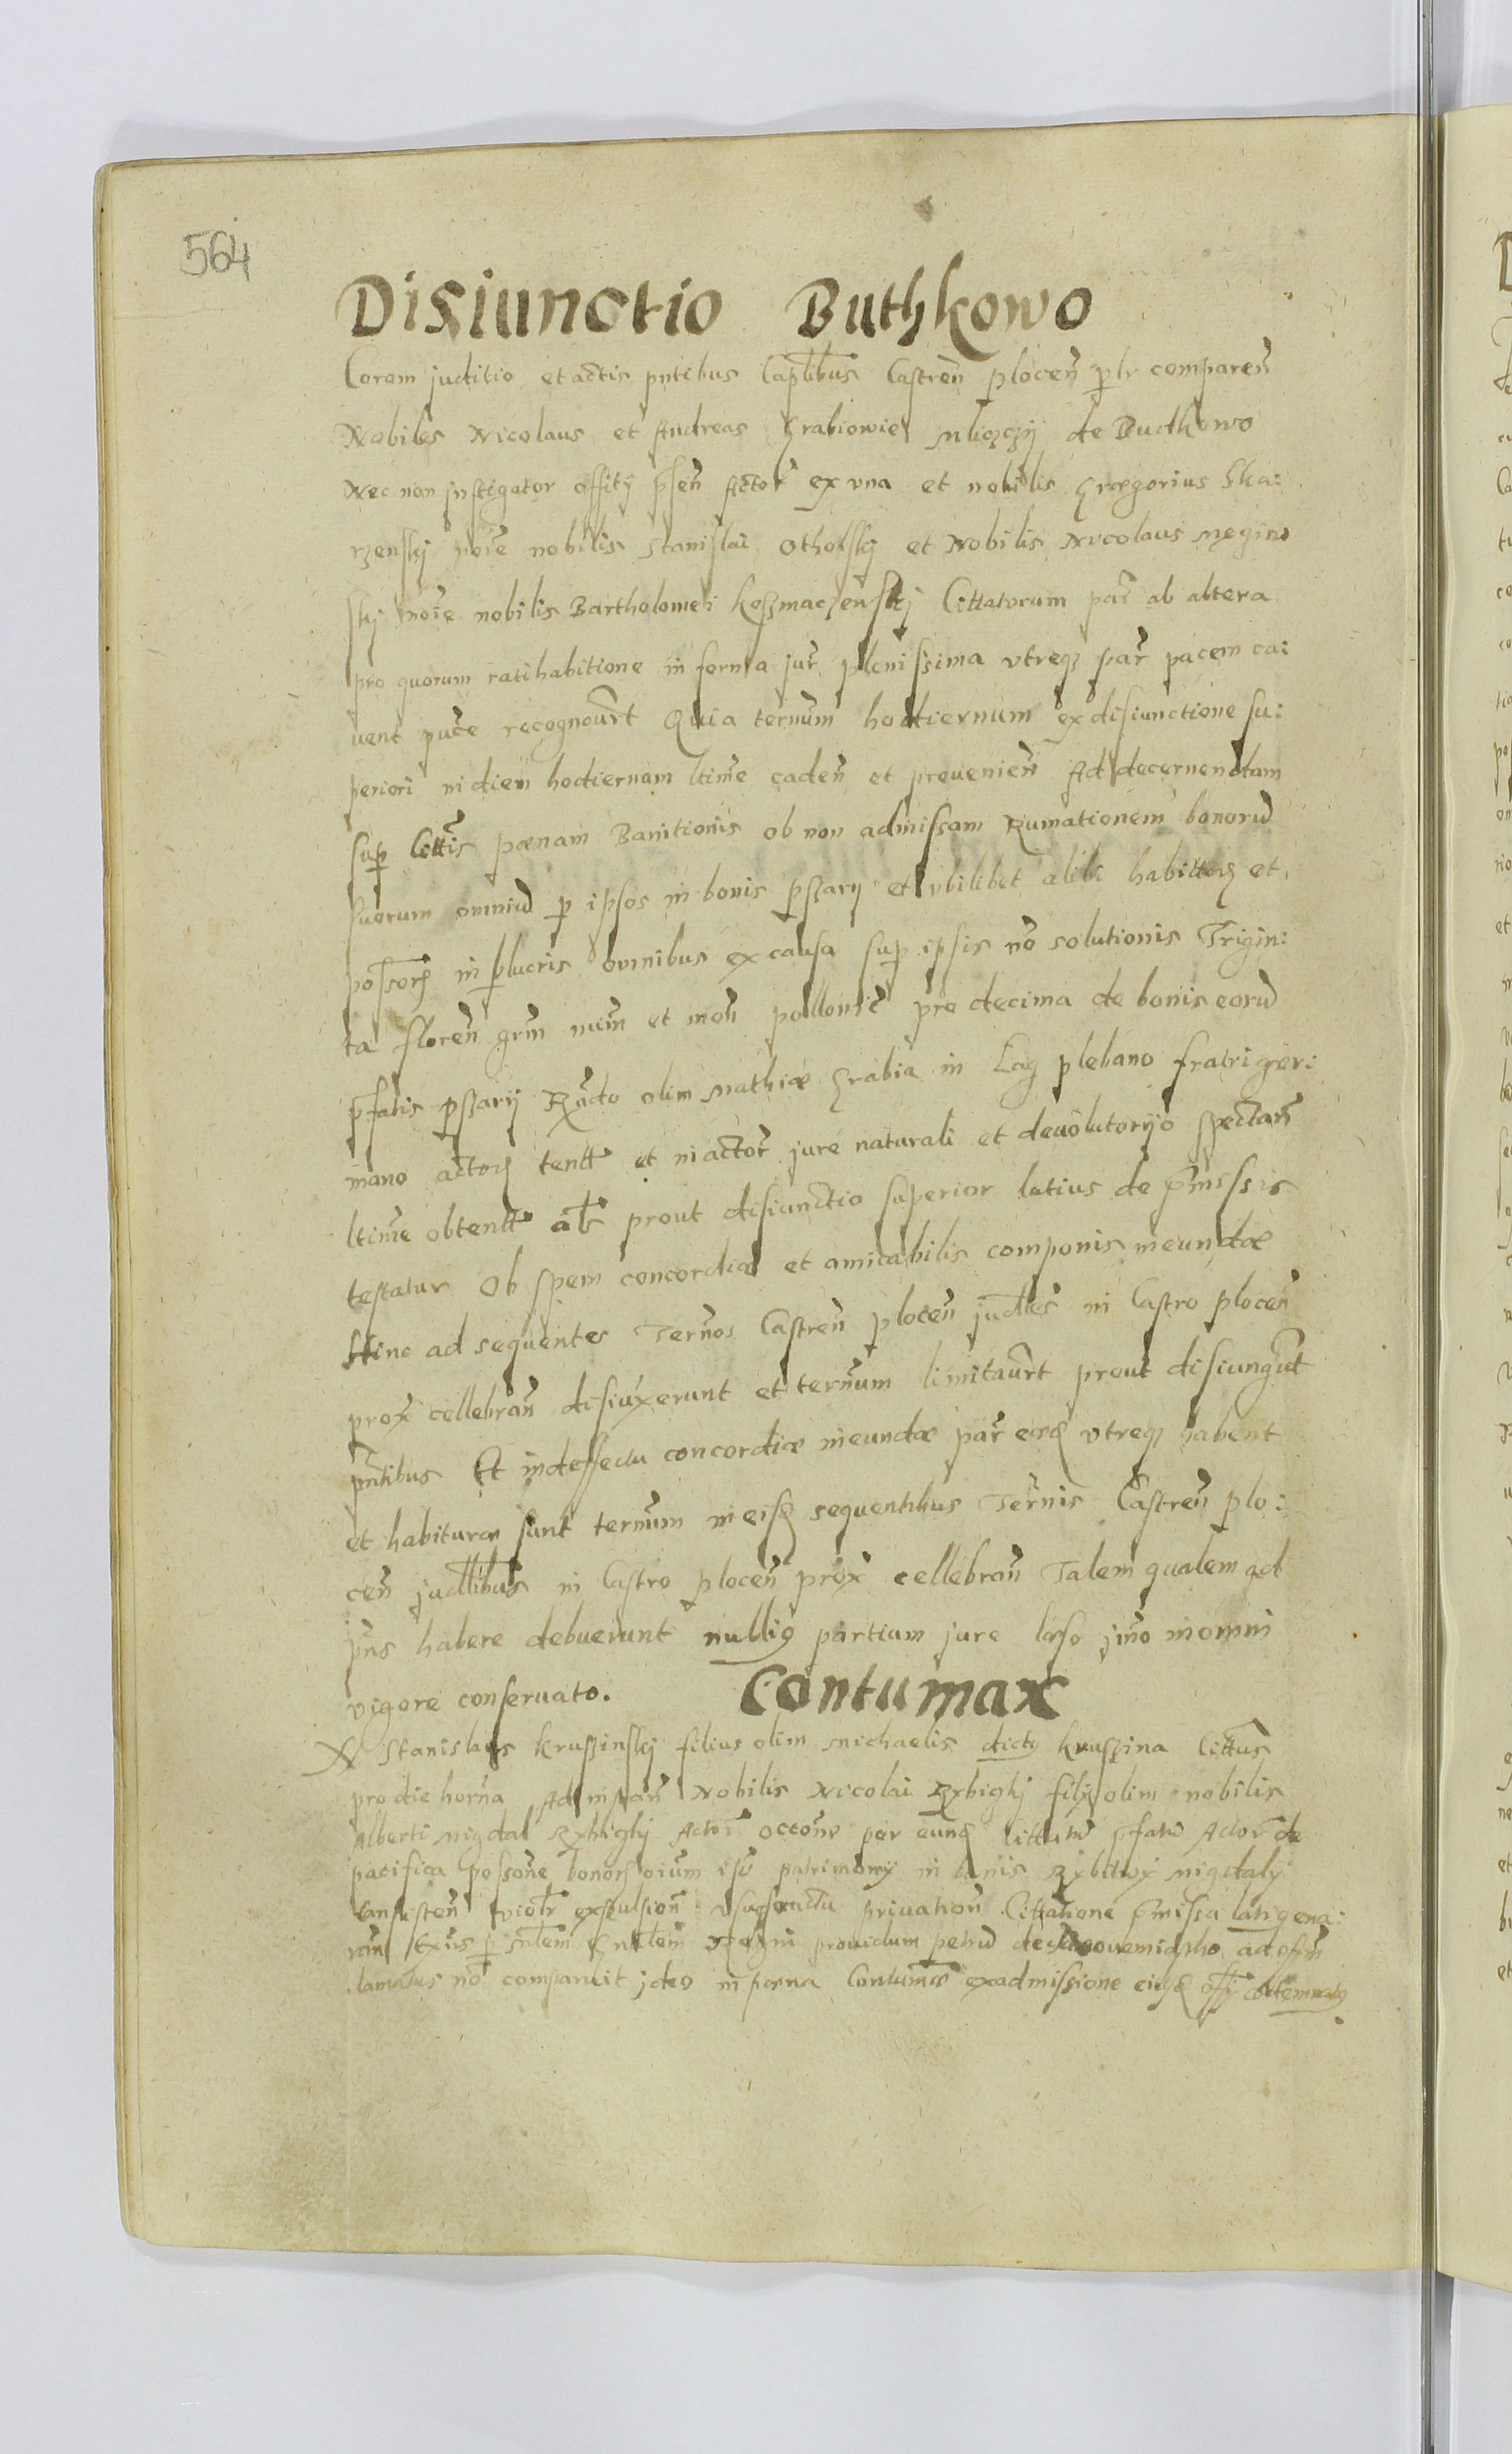 564
Disiunctio Buthkowo
Coram juditio et actis pntibus Caplibus Castren plocen plr comparen
Nobiles Nicolaus et Andreas Grabiowie de Budkowo
Nec non jnstigator offitij pñ Actor ex vna et nobilis Gregorius Ska:
rzenskj noie nobilis Stanislai Otholskj et Nobilis Nicolaus
skj noie nobilis Bartholomei Cittatorum par ab altera
pro quorum ratihabitione in forma jur plenissima vtreqz par pacem ca:
uent recognouert Quia ternum hodiernum ex disiunctione su:
periori in diem hodiernam ltime caden et preuenien Ad decernendam
sup Cittis pœnam Banitionis ob non admissam Rumationem bonorū
suorum omniū p ipsos in bonis pszarij et vbilibet alibi habittorz et
possorz in omnibus ex causa sup ipsis nō solutionis Trigin:
ta floren grm num et mon pollonic pro decima de bonis eorū
pfatis pszarij Rndo olim Mathiæ Grabia in Lag plebano fratri ger:
mano actorz tentt et in actor jure naturali et deuolutorijo spectan
ltime obtentt prout disiunctio superior latius de pmissis
testatur Ob spem concordiæ et amicabilis componis ineundæ
Hinc ad sequentes Ternos Castren plocen judles in Castro plocen
prox cellebran disiuxerunt et ternum limitauert prout disiungunt
pntibus Et in deffectu concordiæ ineundæ par vtreqz habent
et habituræ sunt ternum in sequentibus Ternis Castren plo:
cen judlibus in Castro plocen prox cellebran Talem qualem ad
pns habere debuerunt nullig partium jure læso jmo in omni
vigore conseruato.
Contumax
N Stanislaus Kruszinskj filius olim Michaelis dictg Kruszina Cittus
pro die horna Ad instan Nobilis Nicolai filij olim nobilis
Alberti Migdal Actor occone per eund Cittatū pfatū Actor de
pacifica possone bonorz oium patrimonij in bonis Migdaly
consisten violr expulsion vsusfructu priuation Cittatione pmissa
ran p prouidum petrū ad offm
lamatus nō comparuit jdeo in pœna Contumæ ex admissione eiusd offij